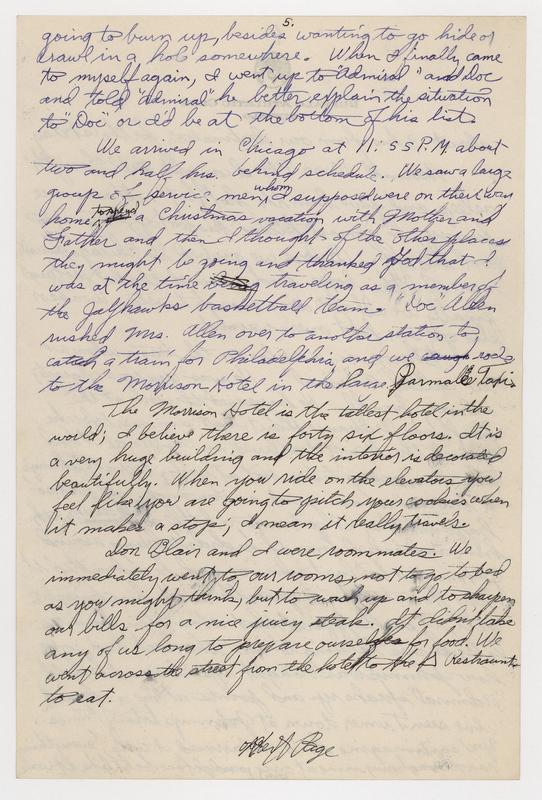 5.
going to burn up, besides wanting to go hide or
crawl in a hole somewhere. When I finally came
to myself again, I went up to "Admiral" and Doc
and told "Admiral" he better explain the situation
to "Doc" or I'd be at the bottom of his list.
We arrived in Chicago at 11:55 P.M. about
two and half hrs. behind schedule. We saw a large
group of service men, whom I supposed were on there way
home to spend a Christmas vacation with Mother and
Father and then I thought of the other places
they might be going and thanked God that I
was at the time traveling as a member of
the Jayhawks basketball team. "Doc" Allen
rushed Mrs. Allen over to another station to
catch a train for Philadelphia, and we rode
to the Morrison Hotel in the large Parmalee Taxi.
The Morrison Hotel is the tallest hotel in the
world; I believe there is forty six floors. It is
a very huge building and the interior is decorated
beautifully. When you ride on the elevators you
feel like you are going to pitch your cookies when
it makes a stop; I mean it really travels.
Don Blair and I were roommates. We
immediately went to our rooms, not to go to bed
as you might think, but to wash up and to sharpen
our bills for a nice juicy steak. It didn't take
any of us long to prepare ourselves for food. We
went across the street from the hotel to the Restraunt
to eat.
Page